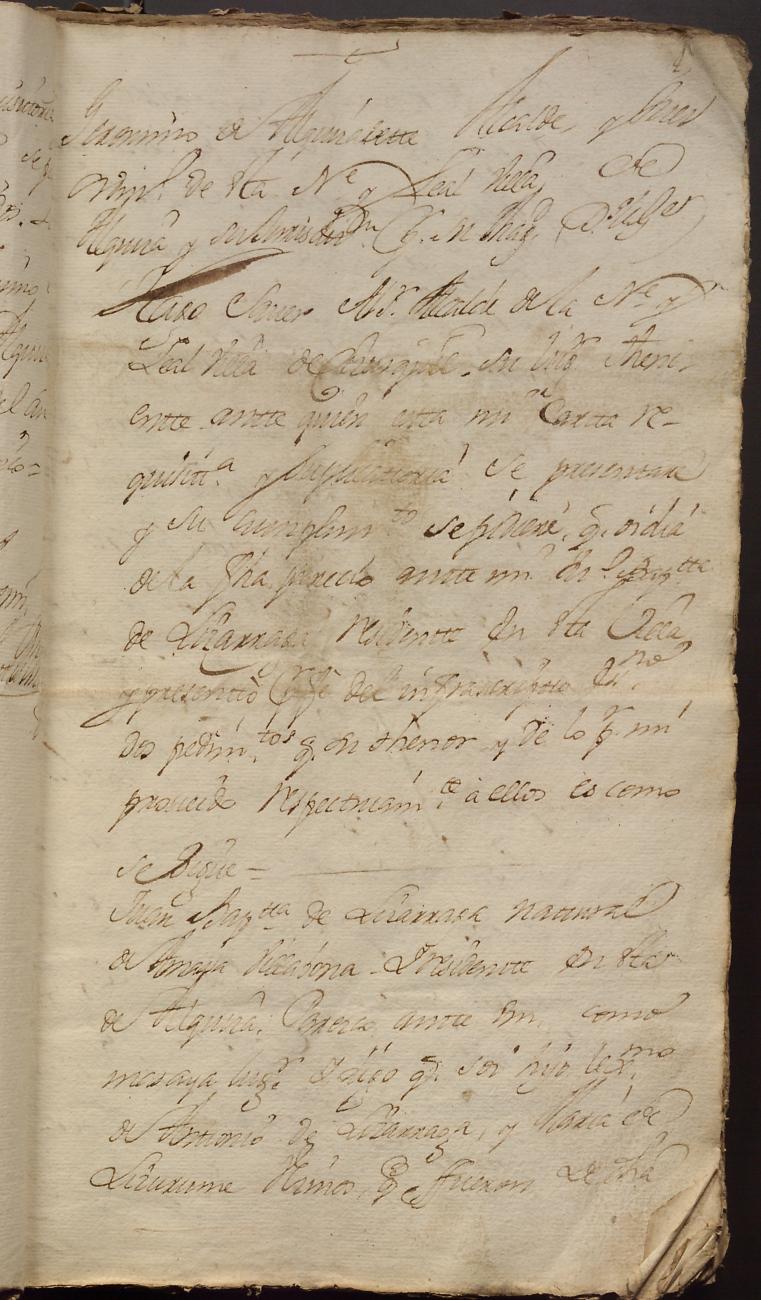 Geronimo de Alquizalette Alcalde, y Juez
ordin.º de sta N.e y Leal Villa de
Alquiza y su Jurisdicion
Hago Saver Al Sr. Alcalde de la N.e y
Leal Villa de su lugr. theni-
entte antte quien estta mi Cartta re-
quisitt.a y suplicattoria se presenttare
y su cumplim.to se pidiere, q. oi dia
de la fha parecio antte mi Juº Bap.tta
de Lizarraga residentte en sta Villa
y presentto por fe del infrascripto Ess.no
dos pedim.tos q. su thenor y de lo p.r mi
proveido respectivam.te a ellos es como
se sigue =
Juan Bap.tta de Lizarraga natural
de Amasa Villabona y residentte en sta
de Alquiza, Parezco antte Vm. como
mas aya lugr. y digo q. soi hijo lex.mo
de Antonio de Lizarraga, y Maria de
q. fueron de dha